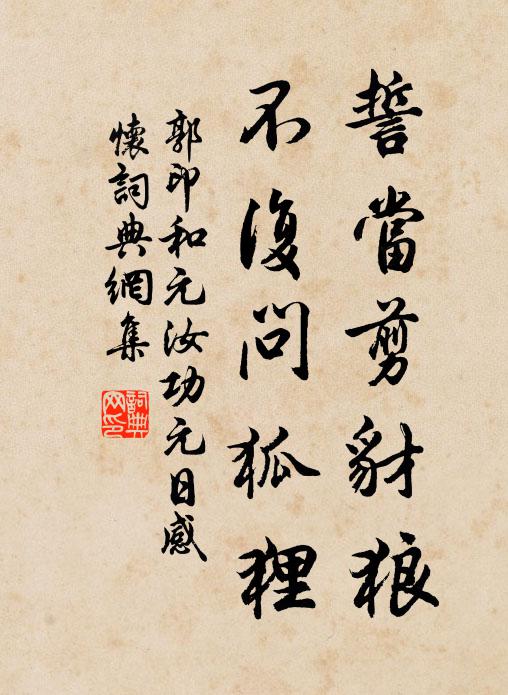 誓當剪豺狼
不復問狐狸
郭印和元汝功元日感
懷詞典網集
詞典
網印